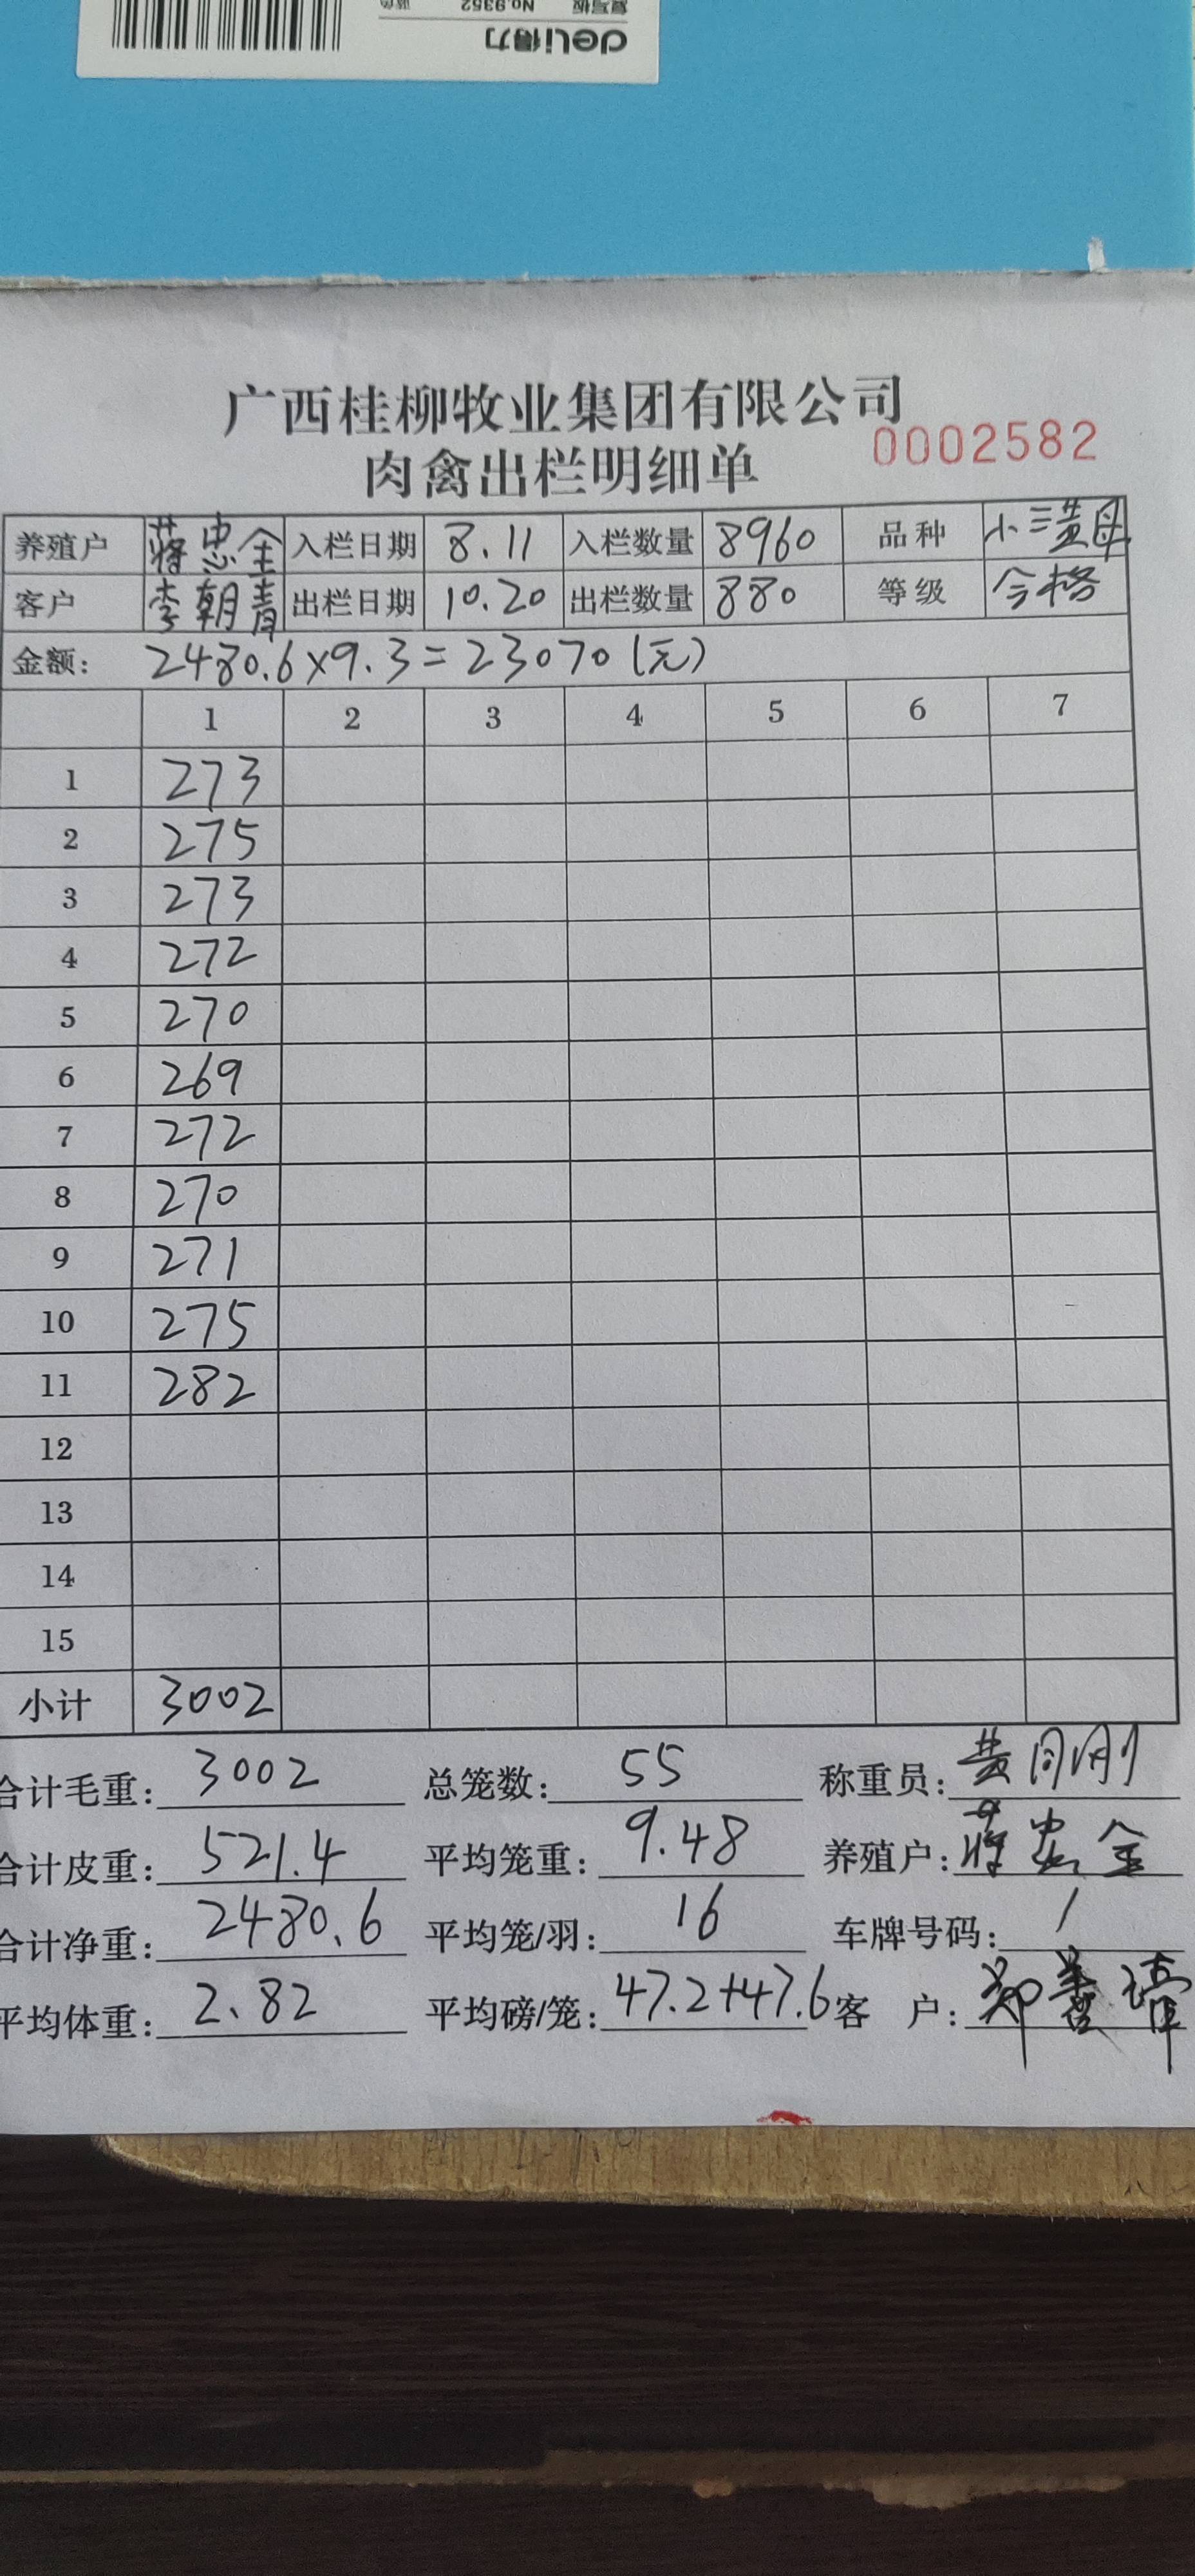 deli得力
复写板 No.9352 蓝色
广西桂柳牧业集团有限公司
肉禽出栏明细单 0002582
养殖户 蒋忠全 入栏日期 8.11 入栏数量 8960 品种 小三黄母
客户 李朝青 出栏日期 10.20 出栏数量 880 等级 合格
金额: 2480.6×9.3=23070(元)
1 2 3 4 5 6 7
1 273
2 275
3 273
4 272
5 270
6 269
7 272
8 270
9 271
10 275
11 282
12
13
14
15
小计 3002
合计毛重: 3002 总笼数: 55 称重员: 黄
合计皮重: 521.4 平均笼重: 9.48 养殖户: 蒋忠全
合计净重: 2480.6 平均笼/羽: 16 车牌号码: /
平均体重: 2.82 平均磅/笼: 47.2+47.6 客户: 郑善